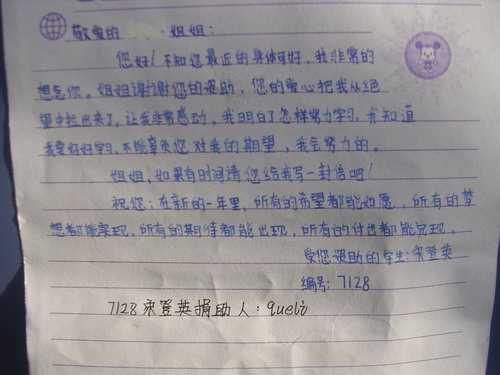 敬爱的 姐姐：
您好！不知您最近的身体可好，我非常的
想念你。姐姐谢谢您的资助，您的爱心把我从绝
望中拉出来了，让我非常感动，我明白了怎样努力学习，我知道
我要好好学习，不能辜负您对我的期望，我会努力的。
姐姐，如果有时间请您给我写一封信吧！
祝您：在新的一年里，所有的希望都能如愿，所有的梦
想都能实现，所有的期待都能出现，所有的付出都能兑现。
受您资助的学生：宋登英
编号：7128
7128 宋登英捐助人：